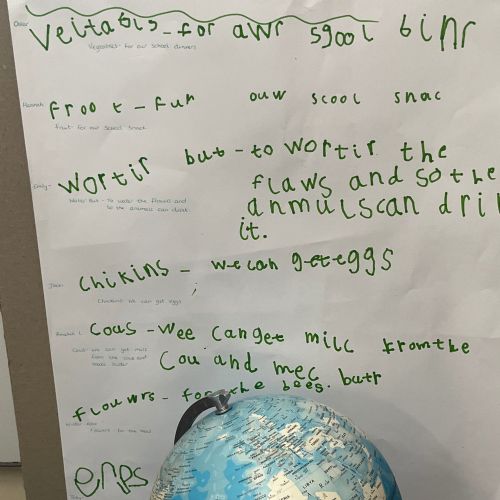 Oskar
Veitabis - for awr sgool binr
Vegetables - for our school dinners
Hannah
froot - fur ouw scool snac
fruit - for our school snack
Emily -
wortir but - to wortir the
flaws and so the
anmulscan dri
it.
Water But - to water the flowers and
so the animals can drink.
Chikins - we can get eggs
Chickens - we can get eggs
Cous - wee canget milc fromthe
Cou and mec butr
Cows - we can get milk
from the cow and
make butter
flouwrs - for the bees.
Flowers - for the bees